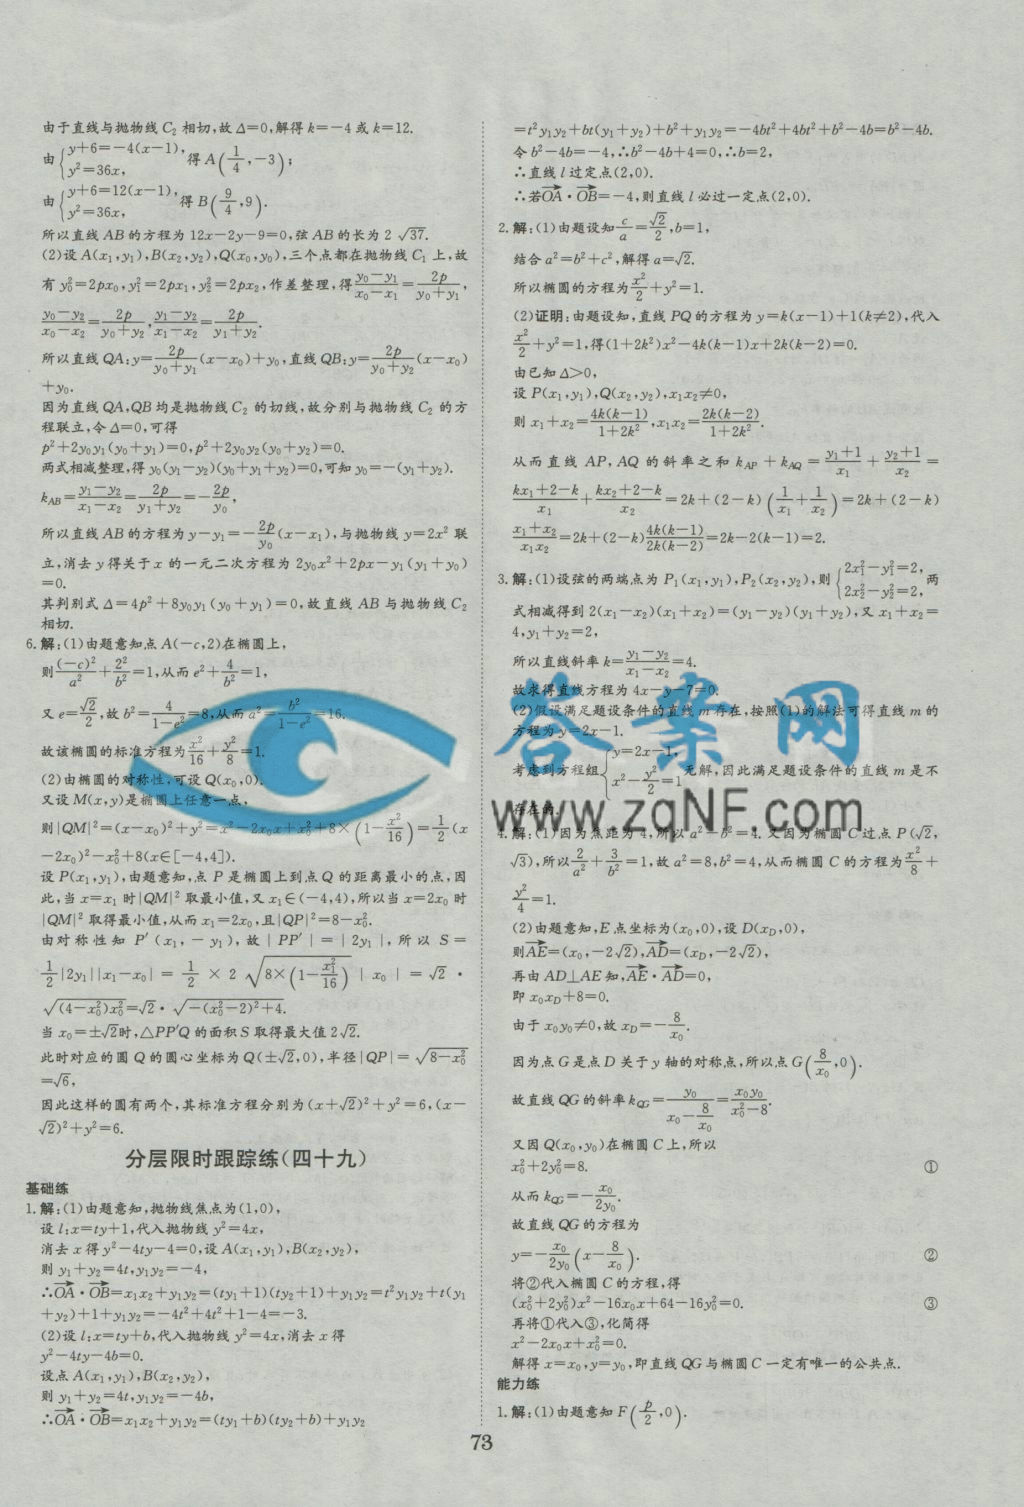 由于直线与抛物线 C₂ 相切,故 Δ=0,解得 k=-4 或 k=12.
由{y+6=-4(x-1), y²=36x, 得 A(1/4,-3);
由{y+6=12(x-1), y²=36x, 得 B(9/4,9).
所以直线 AB 的方程为 12x-2y-9=0,弦 AB 的长为 2√37.
(2)设 A(x₁,y₁),B(x₂,y₂),Q(x₀,y₀),三个点都在抛物线 C₁ 上,故
有 y₀²=2px₀,y₁²=2px₁,y₂²=2px₂,作差整理,得 (y₀-y₁)/(x₀-x₁)=2p/(y₀+y₁),
(y₀-y₂)/(x₀-x₂)=2p/(y₀+y₂),(y₁-y₂)/(x₁-x₂)=2p/(y₁+y₂).
所以直线 QA:y=2p/(y₀+y₁)(x-x₀)+y₀,直线 QB:y=2p/(y₀+y₂)(x-x₀)
+y₀.
因为直线 QA,QB 均是抛物线 C₂ 的切线,故分别与抛物线 C₂ 的方
程联立,令 Δ=0,可得
p²+2y₀y₁(y₀+y₁)=0,p²+2y₀y₂(y₀+y₂)=0.
两式相减整理,得 y₀(y₁-y₂)(y₀+y₁+y₂)=0,可知 y₀=-(y₁+y₂).
k_AB=(y₁-y₂)/(x₁-x₂)=2p/(y₁+y₂)=-2p/y₀,
所以直线 AB 的方程为 y-y₁=-2p/y₀(x-x₁),与抛物线 y=2x² 联
立,消去 y 得关于 x 的一元二次方程为 2y₀x²+2px-y₁(y₁+y₀)
=0.
其判别式 Δ=4p²+8y₀y₁(y₀+y₁)=0,故直线 AB 与抛物线 C₂
相切.
6.解:(1)由题意知点 A(-c,2)在椭圆上,
则(-c)²/a²+2²/b²=1,从而 e²+4/b²=1,
又 e=√2/2,故 b²=4/(1-e²)=8,从而 a²=b²/(1-e²)=16.
故该椭圆的标准方程为 x²/16+y²/8=1.
(2)由椭圆的对称性,可设 Q(x₀,0).
又设 M(x,y)是椭圆上任意一点,
则|QM|²=(x-x₀)²+y²=x²-2x₀x+x₀²+8×(1-x²/16)=1/2(x
-2x₀)²-x₀²+8(x∈[-4,4]).
设 P(x₁,y₁),由题意知,点 P 是椭圆上到点 Q 的距离最小的点,因
此,当 x=x₁ 时|QM|² 取最小值,又 x₁∈(-4,4),所以当 x=2x₀ 时
|QM|² 取得最小值,从而 x₁=2x₀,且|QP|²=8-x₀².
由对称性知 P′(x₁,-y₁),故|PP′|=|2y₁|,所以 S=
1/2|2y₁||x₁-x₀|=1/2×2√(8×(1-x₁²/16))|x₀|=√2·
√((4-x₀²)x₀²)=√2·√(-(x₀²-2)²+4).
当 x₀=±√2时,△PP′Q 的面积 S 取得最大值 2√2.
此时对应的圆 Q 的圆心坐标为 Q(±√2,0),半径|QP|=√(8-x₀²)
=√6,
因此这样的圆有两个,其标准方程分别为(x+√2)²+y²=6,(x-
√2)²+y²=6.
分层限时跟踪练(四十九)
基础练
1.解:(1)由题意知,抛物线焦点为(1,0),
设 l:x=ty+1,代入抛物线 y²=4x,
消去 x 得 y²-4ty-4=0,设 A(x₁,y₁),B(x₂,y₂),
则 y₁+y₂=4t,y₁y₂=-4,
∴OA→·OB→=x₁x₂+y₁y₂=(ty₁+1)(ty₂+1)+y₁y₂=t²y₁y₂+t(y₁
+y₂)+1+y₁y₂=-4t²+4t²+1-4=-3.
(2)设 l:x=ty+b,代入抛物线 y²=4x,消去 x 得
y²-4ty-4b=0.
设点 A(x₁,y₁),B(x₂,y₂),
则 y₁+y₂=4t,y₁y₂=-4b,
∴OA→·OB→=x₁x₂+y₁y₂=(ty₁+b)(ty₂+b)+y₁y₂
=t²y₁y₂+bt(y₁+y₂)+b²+y₁y₂=-4bt²+4bt²+b²-4b=b²-4b.
令 b²-4b=-4,∴b²-4b+4=0,∴b=2,
∴直线 l 过定点(2,0).
∴若OA→·OB→=-4,则直线 l 必过一定点(2,0).
2.解:(1)由题设知 c/a=√2/2,b=1,
结合 a²=b²+c²,解得 a=√2.
所以椭圆的方程为 x²/2+y²=1.
(2)证明:由题设知,直线 PQ 的方程为 y=k(x-1)+1(k≠2),代入
x²/2+y²=1,得(1+2k²)x²-4k(k-1)x+2k(k-2)=0.
由已知 Δ>0,
设 P(x₁,y₁),Q(x₂,y₂),x₁x₂≠0,
则 x₁+x₂=4k(k-1)/(1+2k²),x₁x₂=2k(k-2)/(1+2k²).
从而直线 AP,AQ 的斜率之和 k_AP+k_AQ=(y₁+1)/x₁+(y₂+1)/x₂=
(kx₁+2-k)/x₁+(kx₂+2-k)/x₂=2k+(2-k)(1/x₁+1/x₂)=2k+(2-k)
(x₁+x₂)/(x₁x₂)=2k+(2-k)4k(k-1)/2k(k-2)=2k-2(k-1)=2.
3.解:(1)设弦的两端点为 P₁(x₁,y₁),P₂(x₂,y₂),则{2x₁²-y₁²=2, 2x₂²-y₂²=2, 两
式相减得到 2(x₁-x₂)(x₁+x₂)=(y₁-y₂)(y₁+y₂),又 x₁+x₂=
4,y₁+y₂=2,
所以直线斜率 k=(y₁-y₂)/(x₁-x₂)=4.
故求得直线方程为 4x-y-7=0.
(2)假设满足题设条件的直线 m 存在,按照(1)的解法可得直线 m 的
方程为 y=2x-1.
考虑到方程组{y=2x-1, x²-y²/2=1 无解,因此满足题设条件的直线 m 是不
存在的.
4.解:(1)因为焦距为 4,所以 a²-b²=4.又因为椭圆 C 过点 P(√2,
√3),所以 2/a²+3/b²=1,故 a²=8,b²=4,从而椭圆 C 的方程为 x²/8+
y²/4=1.
(2)由题意知,E 点坐标为(x₀,0),设 D(x_D,0),
则AE→=(x₀,-2√2),AD→=(x_D,-2√2),
再由 AD⊥AE 知,AE→·AD→=0,
即 x₀x_D+8=0.
由于 x₀y₀≠0,故 x_D=-8/x₀.
因为点 G 是点 D 关于 y 轴的对称点,所以点 G(8/x₀,0).
故直线 QG 的斜率 k_QG=y₀/(x₀-8/x₀)=x₀y₀/(x₀²-8).
又因 Q(x₀,y₀)在椭圆 C 上,所以
x₀²+2y₀²=8. ①
从而 k_QG=-x₀/2y₀.
故直线 QG 的方程为
y=-x₀/2y₀(x-8/x₀). ②
将②代入椭圆 C 的方程,得
(x₀²+2y₀²)x²-16x₀x+64-16y₀²=0. ③
再将①代入③,化简得
x²-2x₀x+x₀²=0.
解得 x=x₀,y=y₀,即直线 QG 与椭圆 C 一定有唯一的公共点.
能力练
1.解:(1)由题意知 F(p/2,0).
答案网
www.zqNF.com
73